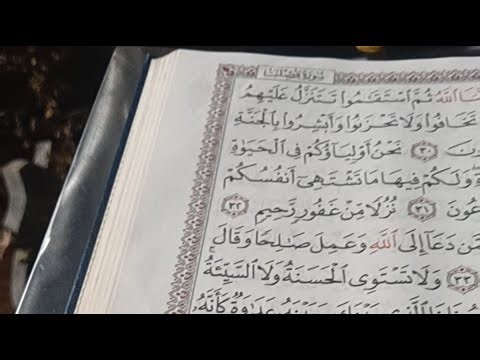 سُورَةُ فُصِّلَتْ
اللَّهُ ثُمَّ اسْتَقَامُوا تَتَنَزَّلُ عَلَيْهِمُ
تَخَافُوا وَلَا تَحْزَنُوا وَأَبْشِرُوا بِالْجَنَّةِ
٣٠ نَحْنُ أَوْلِيَاؤُكُمْ فِي الْحَيَوٰةِ
وَلَكُمْ فِيهَا مَا تَشْتَهِي أَنفُسُكُمْ
٣١ نُزُلًا مِّنْ غَفُورٍ رَّحِيمٍ ٣٢
دَعَا إِلَى اللَّهِ وَعَمِلَ صَالِحًا وَقَالَ
٣٣ وَلَا تَسْتَوِي الْحَسَنَةُ وَلَا السَّيِّئَةُ
عَدَاوَةٌ كَأَنَّهُ